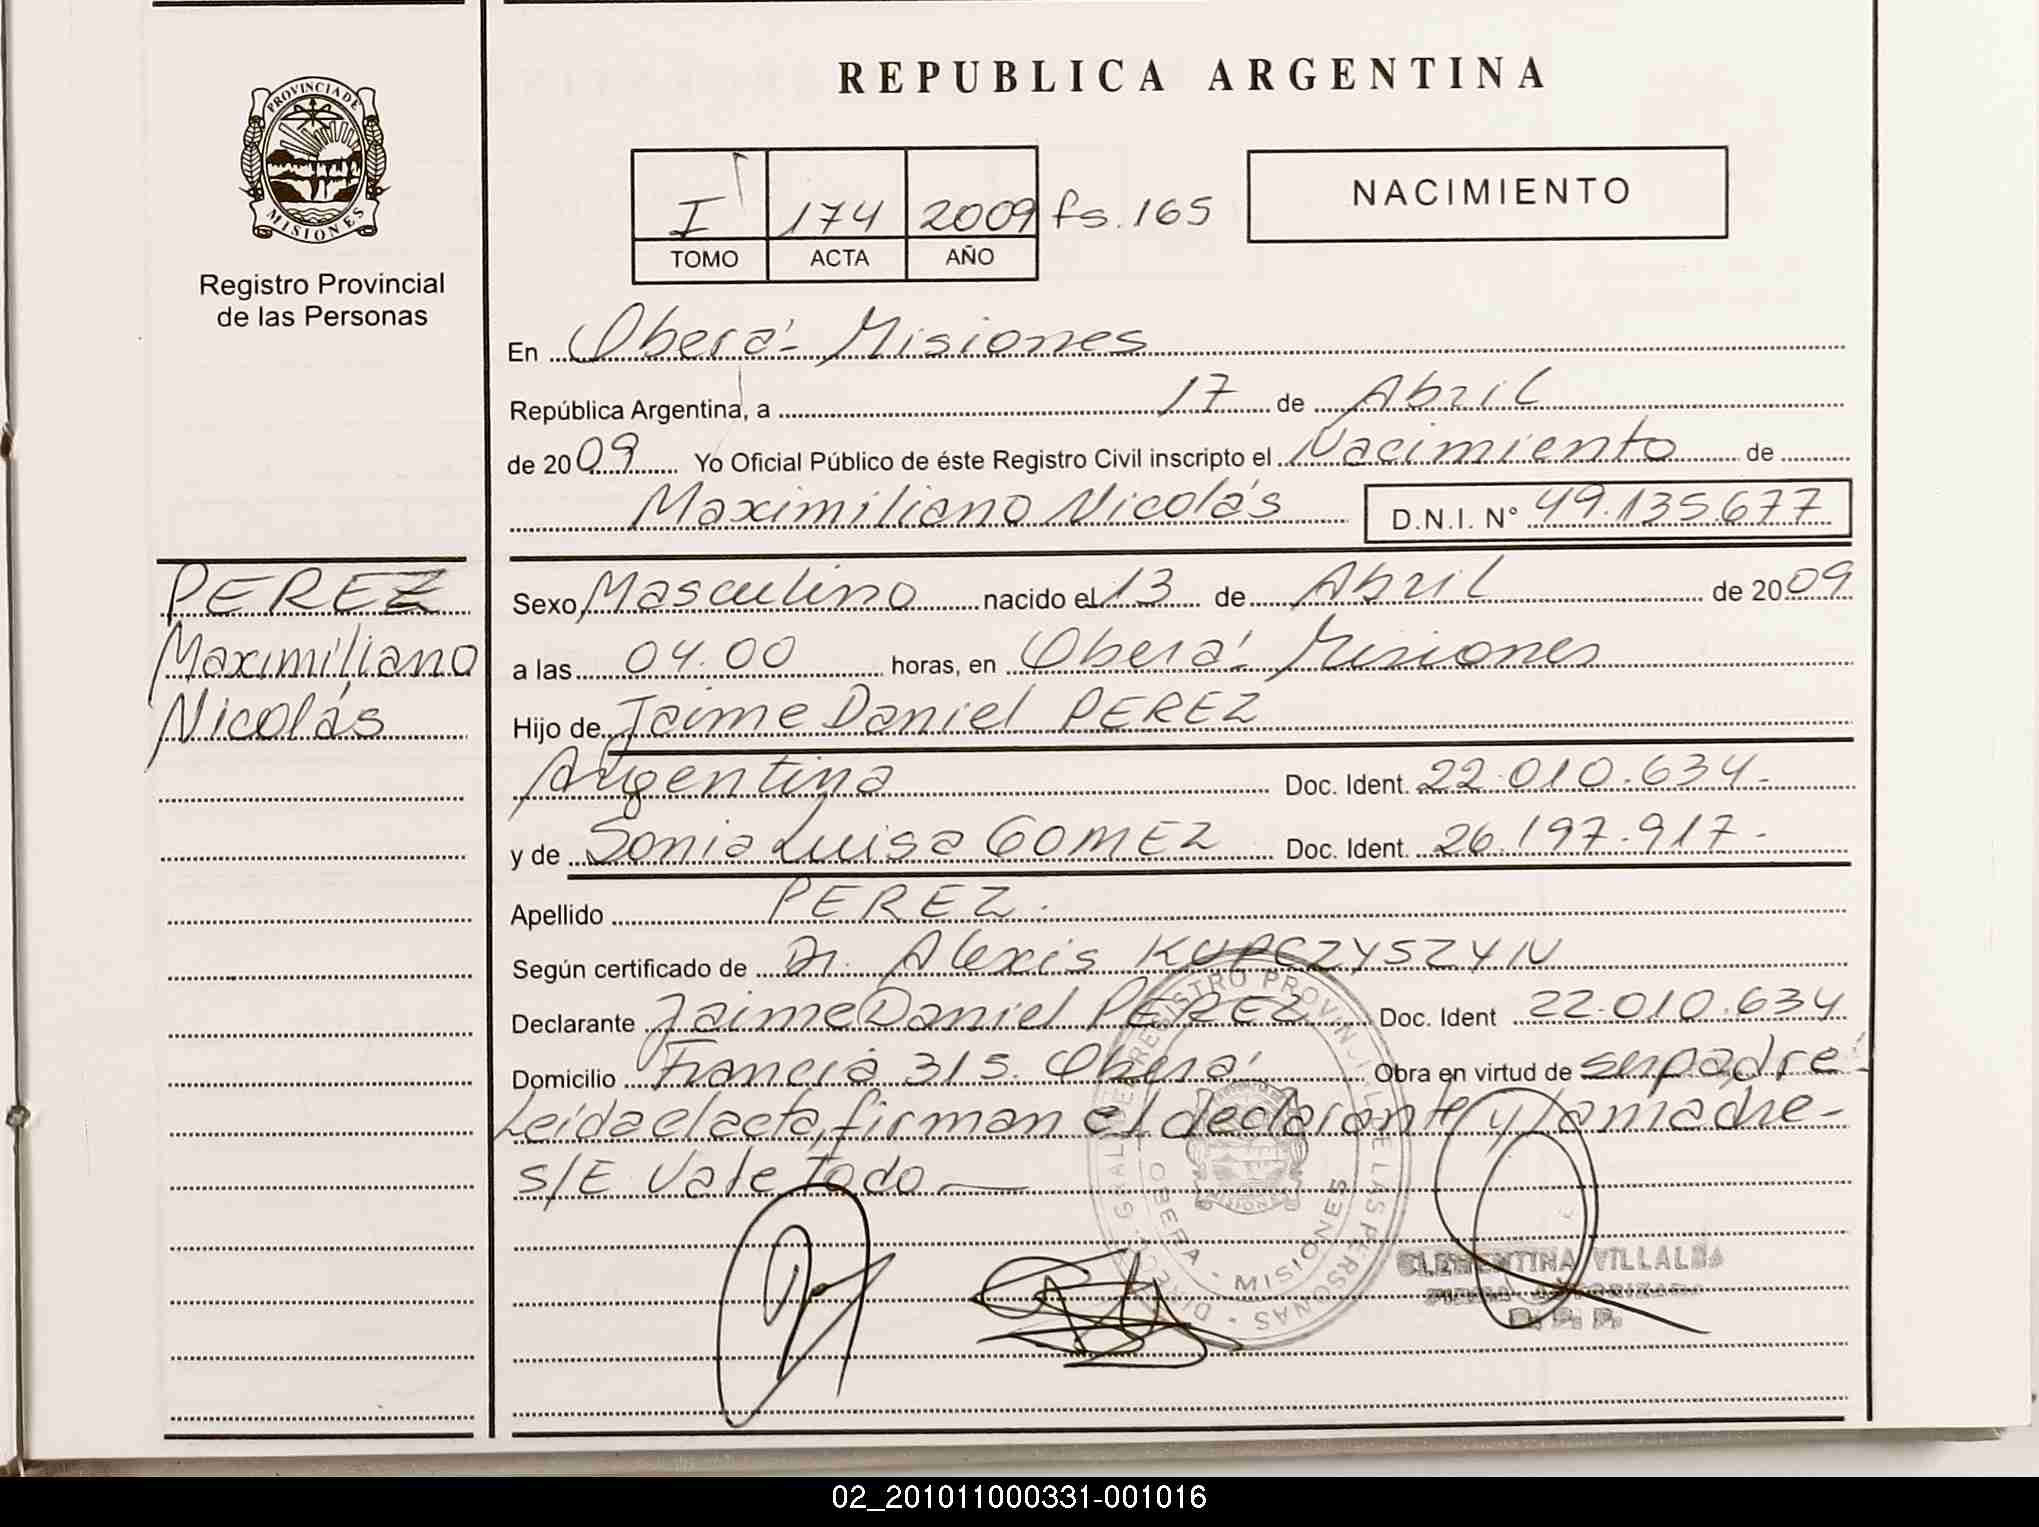 PROVINCIA DE MISIONES
Registro Provincial
de las Personas
PEREZ
Maximiliano
Nicolás
REPUBLICA ARGENTINA
I 174 2009 fs. 165
TOMO ACTA AÑO
NACIMIENTO
En Oberá - Misiones
República Argentina, a 17 de Abril
de 2009 Yo Oficial Público de éste Registro Civil inscripto el Nacimiento de
Maximiliano Nicolás D.N.I. N° 49.135.677
Sexo Masculino nacido el 13 de Abril de 2009
a las 04.00 horas, en Oberá - Misiones
Hijo de Jaime Daniel PEREZ
Argentina Doc. Ident. 22.010.634.-
y de Sonia Luisa GOMEZ Doc. Ident. 26.197.917.-
Apellido PEREZ.
Según certificado de Dr. Alexis KUPCZYSZYN
Declarante Jaime Daniel PEREZ Doc. Ident 22.010.634
Domicilio Francia 315. Oberá Obra en virtud de ser padre
Leída el acta, firman el declarante y la madre -
s/E Vale Todo —
REGISTRO PROVINCIAL DE LAS PERSONAS
OBERA - MISIONES
CLEMENTINA VILLALBA
FIRMA AUTORIZADA
R. P. P.
02_201011000331-001016